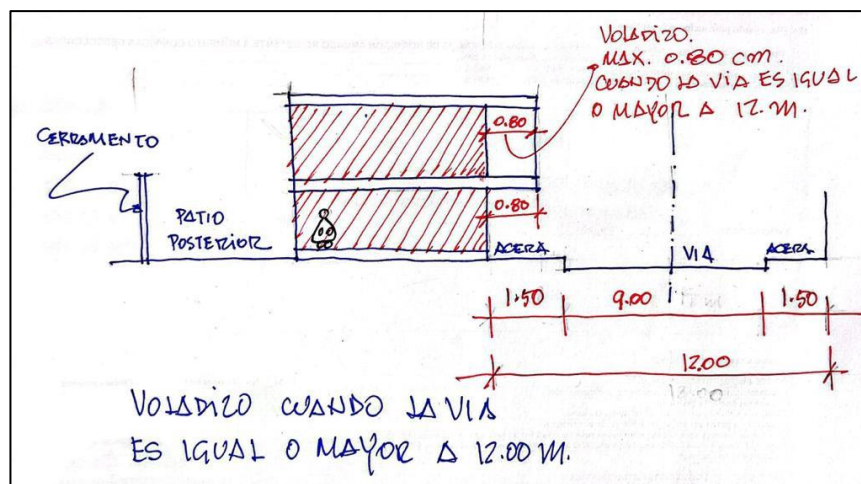 VOLADIZO.
MAX. 0.80 cm.
CUANDO LA VIA ES IGUAL
O MAYOR A 12.M.
CERRAMENTO
0.80
0.80
PATIO
POSTERIOR
ACERA
VIA
ACERA
1.50
9.00
1.50
12.00
VOLADIZO CUANDO LA VIA
ES IGUAL O MAYOR A 12.00 M.